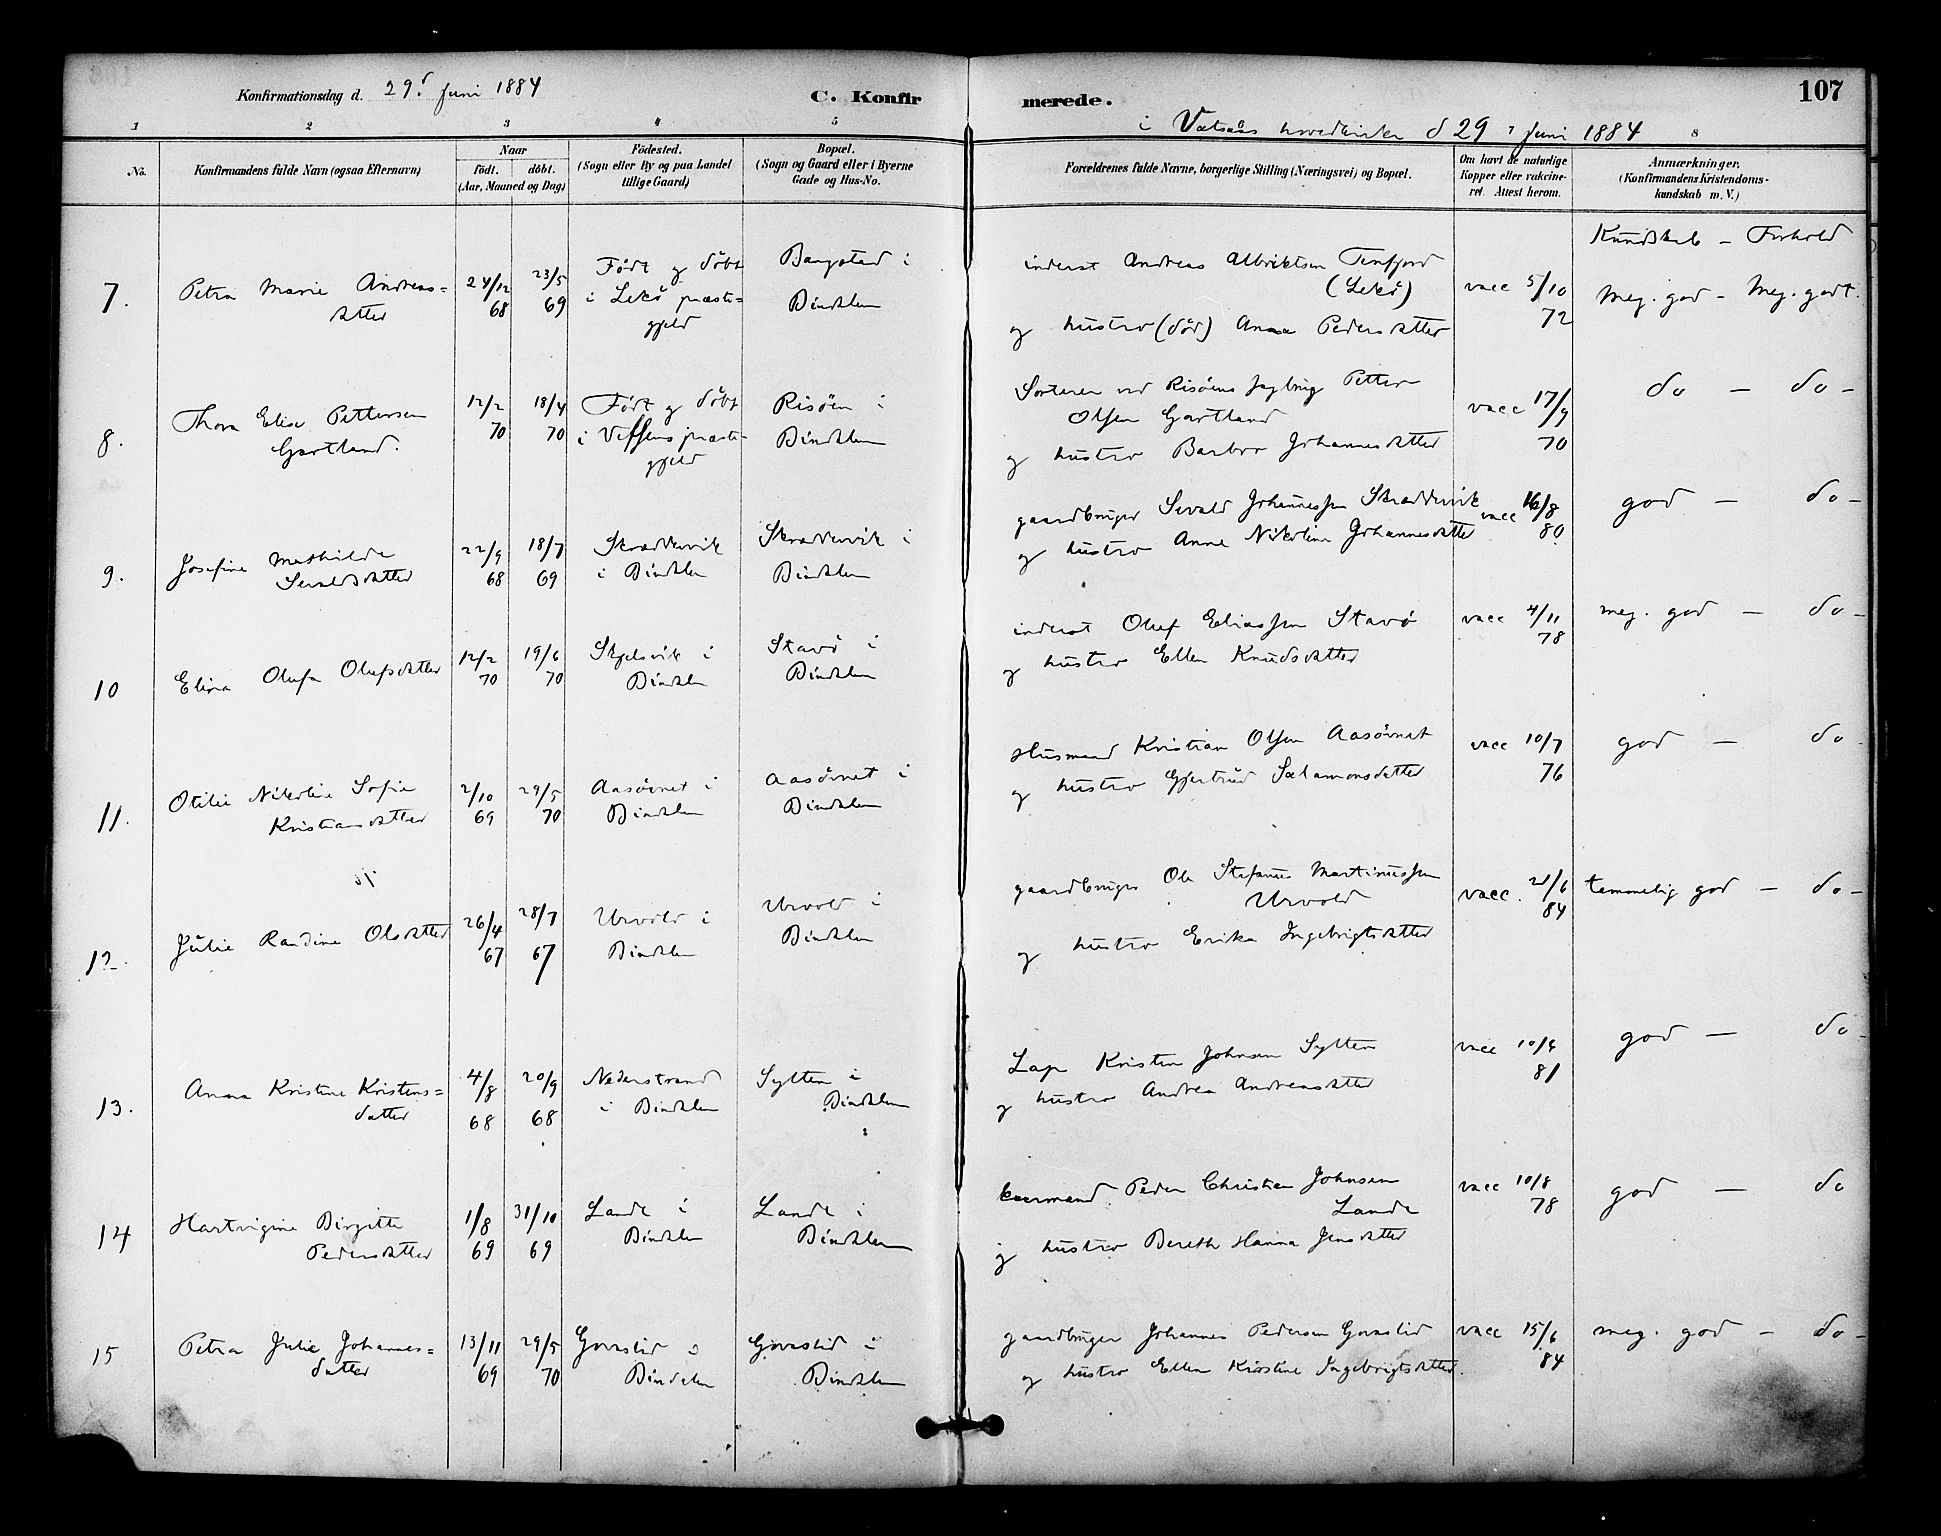 107
Konfirmationsdag d. 29d Juni 1884
C. Konfirmerede.
i Vatsaas hovedkirke d 29 Juni 1884
1 2 3 4 5 8
No.
Konfirmandens fulde Navn (ogsaa Efternavn)
Naar
födt. döbt.
(Aar, Maaned og Dag)
Födested.
(Sogn eller By og paa Landet
tillige Gaard)
Bopæl.
(Sogn og Gaard eller i Byerne
Gade og Hus-No.
Forældrenes fulde Navne, borgerlige Stilling (Næringsvei) og Bopæl.
Om havt de naturlige
Kopper eller vakcine-
ret. Attest herom.
Anmærkninger.
(Konfirmandens Kristendoms-
kundskab m. V.)
Kundskab – Forhold
7.
Petra Marie Andreas=
datter
24/12
68
23/5
69
Födt og döbt
i Lekö præste=
gjeld
Bangstad i
Bindalen
inderst Andreas Albriktsen Terfjord
(Lekö)
og hustro (död) Anna Pedersdatter
vacc 5/10
72
Meg. god – Meg. godt.
8.
Thora Elise Pettersen
Gartland.
12/2
70
18/4
70
Födt og döbt
i Vefsens præste-
gjeld
Risöen i
Bindalen
Sorterer ved Risöens sagbrug Petter
Olsen Gartland
og hustro Barbro Johannesdatter
vacc 17/9
70
do – do –
9.
Josefine Mathilde
Sevaldsdatter
22/9
68
18/7
69
Skraddervik
i Bindalen
Skraddervik i
Bindalen
gaardbruger Sevald Johannessen Skraddervik
og hustro Anne Nikoline Johannesdatter
vacc 16/8
80
god – do –
10
Elina Olufa Olufsdatter
12/2
70
19/6
70
Skjelsvik i
Bindalen
Stavö i
Bindalen
inderst Oluf Eliassen Stavö
og hustro Ellen Knudsdatter
vacc 4/11
78
meg. god – do –
11.
Otilie Nikoline Sofie
Kristiansdatter
2/10
69
29/5
70
Aasövnet i
Bindalen
Aasövnet i
Bindalen
Husmand Kristian Olsen Aasövnet
og hustro Gjertrud Salamonsdatter
vacc 10/7
76
god – do –
12.
Julie Randine Olsdatter
26/4
67
28/7
67
Urvold i
Bindalen
Urvold i
Bindalen
gaardbruger Ole Stefanus Martinussen
Urvold
og hustro Erika Ingebrigtsdatter
vacc. 21/6
84
temmelig god – do –
13.
Anna Kristine Kristens=
datter
4/8
68
20/9
68
Nederstrand
i Bindalen
Sylten i
Bindalen
Lap Kristen Johnsen Sylten
og hustro Andrea Andreasdatter
vacc 10/9
81
god – do –
14
Hartvigine Birgitte
Pedersdatter
1/8
69
31/10
69
Lande i
Bindalen
Lande i
Bindalen
kaarmand Peder Christian Johnsen
Lande
og hustro Bereth Hanna Jensdatter
vacc 10/8
78
god – do
15
Petra Julie Johannes=
datter
13/11
69
29/5
70
Gvraslid i
Bindalen
Gvraslid i
Bindalen
gaardbruger Johannes Pedersen Gvraslid
og hustro Ellen Kirstine Ingebrigtsdatter.
vacc 15/6
84
meg. god – do –